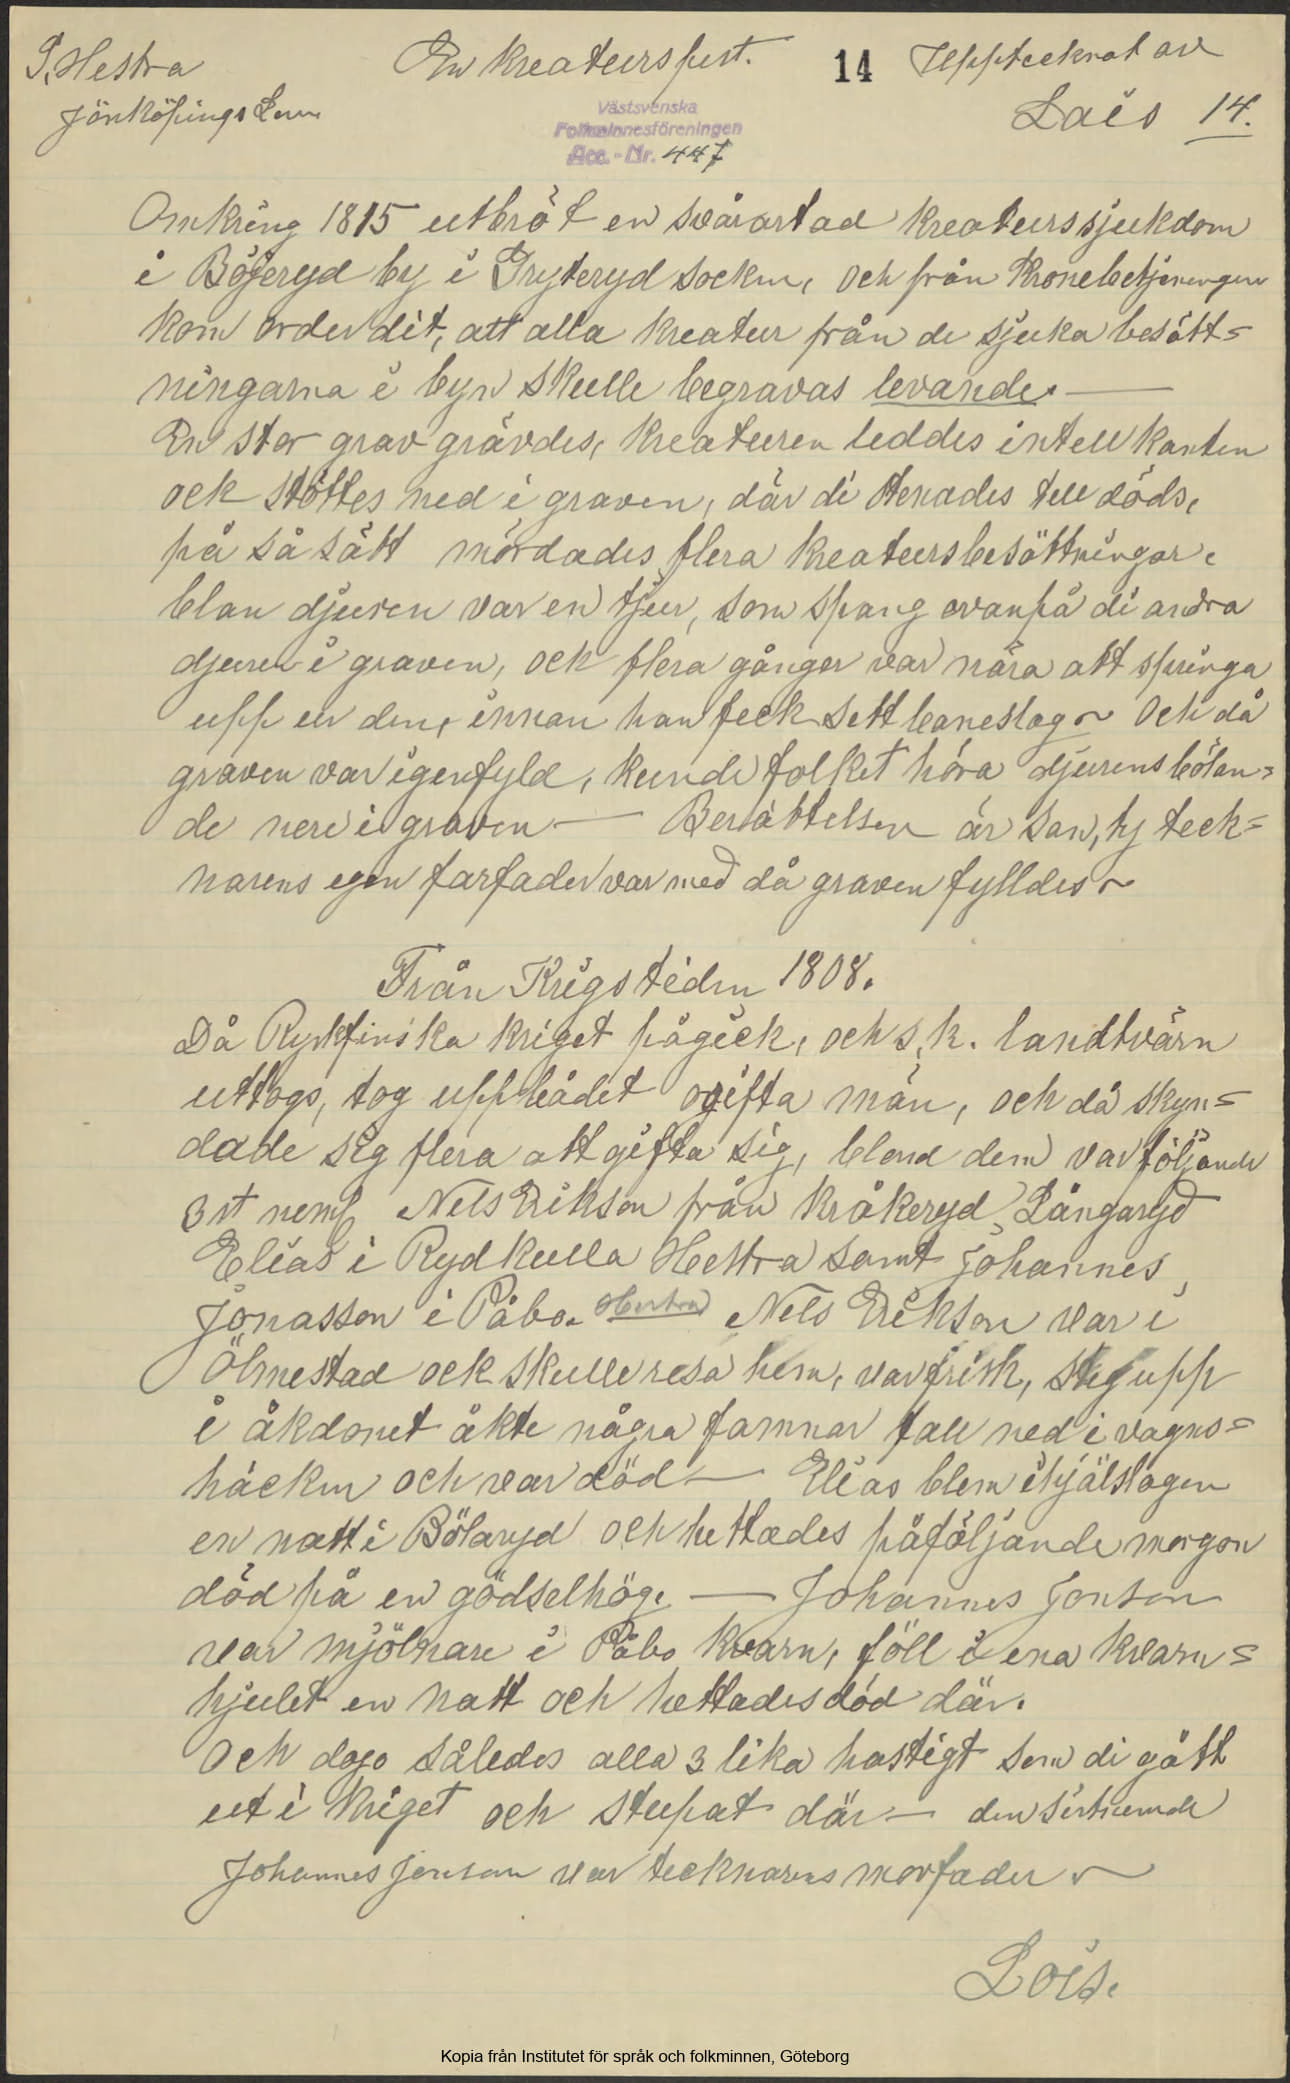 S. Hestra
Jönköpings Län
En Kreaturspest.
14
Upptecknat av
Lois 14.
Västsvenska
Folkminnesföreningen
Acc.-Nr. 447
Omkring 1815 utbröt en svårartad kreaturssjukdom
i Böjeryd by i Gryteryd socken, och från Kronobetjeningen
kom order dit, att alla kreatur från de sjuka besätt=
ningarna i byn skulle begravas levande. —
En stor grav grävdes, kreaturen leddes intell kanten
ock stöttes ned i graven, där di stenades tell döds,
på så sätt mördades flera kreatursbesättningar.
blan djuren var en tjur, som spang ovanpå di andra
djuren i graven, ock flera gånger var nära att springa
upp ur den, innan han feck sett baneslag ~ Och då
graven var igenfyld, kunde folket höra djurens bölan=
de nere i graven — Berättelsen är san, ty teck=
narens egen farfader var med då graven fylldes ~
Från Krigstiden 1808.
Då Ryskfinska kriget pågick, och s.k. landtvärn
uttogs, tog uppbådet ogifta män, och då skyn=
dade sig flera att gifta sig, bland dem var följande
3 st neml Nels Erikson från Kråkeryd, Långaryd
Elias i Rydkulla Hestra samt Johannes
Jonasson i Påbo. Hestra Nels Erikson var i
Ölmestad ock skulle resa hem, var frisk, steg upp
i åkdonet åkte några famnar fall ned i vagns=
häcken och var död — Elias blem ihjälslagen
en natt i Bölaryd och hettades påföljande morgon
död på en gödselhög. — Johannes Jonson
var mjölnare i Påbo kvarn, föll i ena kvarn=
hjulet en natt och hettades död där.
Och dogo således alla 3 lika hastigt som di gått
ut i kriget och stupat där — den sistnemde
Johannes Jonson var tecknarens morfader ~
Lois.
Kopia från Institutet för språk och folkminnen, Göteborg